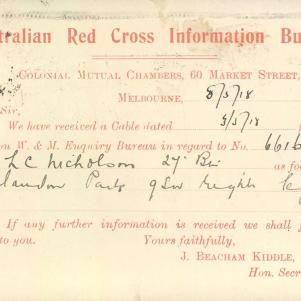 tralian Red Cross Information Bu
Colonial Mutual Chambers, 60 Market Street,
Melbourne, 8/5/18
Sir,
We have received a Cable dated 5/5/18
on W. & M. Enquiry Bureau in regard to No. 6616
L C Nicholson 27 Bn as fo
If any further information is received we shall f
to you. Yours faithfully,
J. BEACHAM KIDDLE,
Hon. Secre